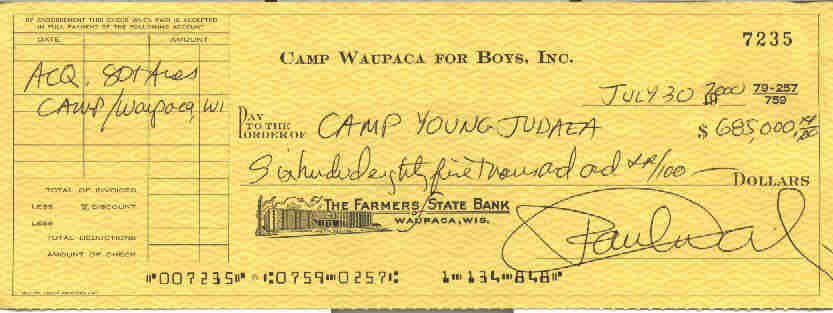 BY ENDORSEMENT THIS CHECK WHEN PAID IS ACCEPTED
IN FULL PAYMENT OF THE FOLLOWING ACCOUNT
DATE AMOUNT
ACQ. 801 Acres
CAMP/Waupaca, WI
TOTAL OF INVOICES
LESS % DISCOUNT
LESS
TOTAL DEDUCTIONS
AMOUNT OF CHECK
7235
CAMP WAUPACA FOR BOYS, INC.
JULY 30 2000 79-257
759
PAY
TO THE
ORDER OF CAMP YOUNG JUDAEA $ 685,000
Six hundred eighty five thousand and /100 DOLLARS
THE FARMERS STATE BANK
OF
WAUPACA, WIS.
⑈007235⑈ ⑆0759⑉0257⑆ 1⑉134⑉848⑈